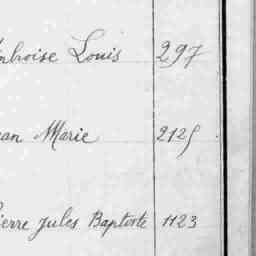 mbroise Louis 297
ean Marie 2125
ierre Jules Baptiste 1123